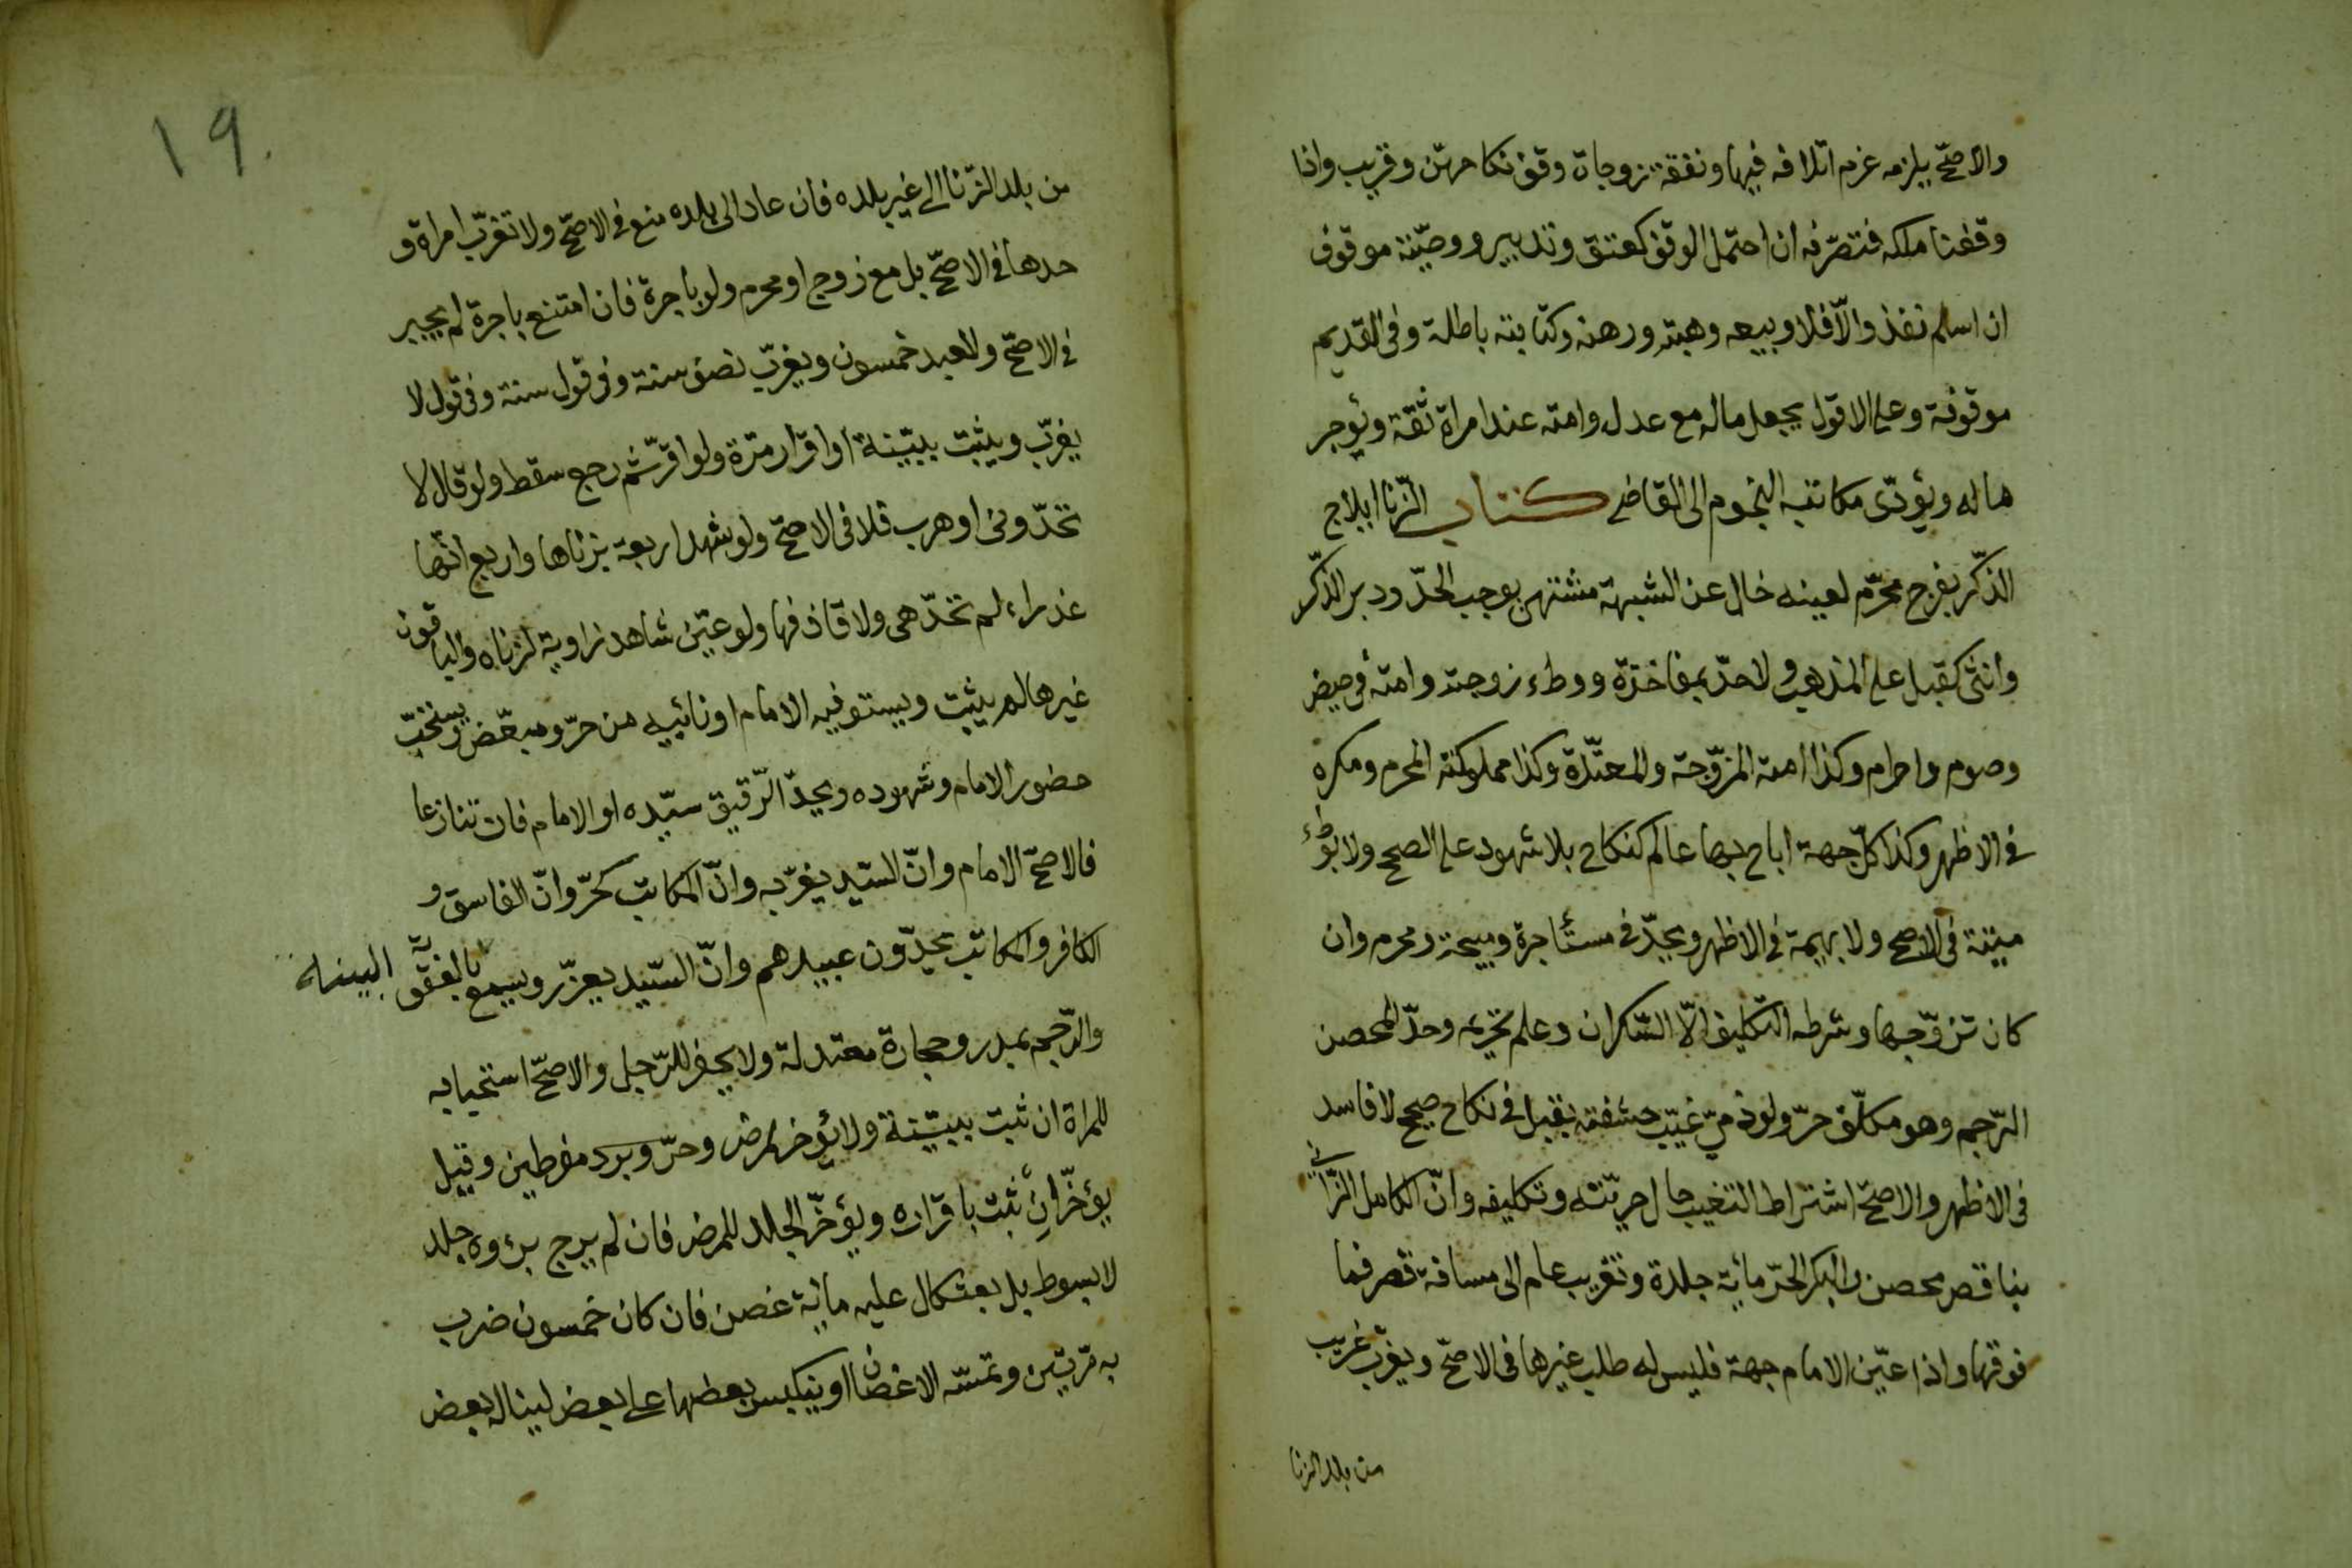 والاصحّ يلزمه غرم اتلافه فيها ونفقة زوجات وقف نكاحهنّ وقريب واذا
وقفنا ملكه فتصرّفه ان احتمل الوقف كعتق وتدبير ووصيّة موقوف
ان اسلم نفذ والّا فلا وبيعه وهبته ورهنه وكتابته باطلة وفى القديم
موقوفة وعلى الاقول يجعل ماله مع عدل وامته عند امراة ثقة ويؤجر
ماله ويؤدّى مكاتبه النجوم الى القاضى كتاب الزّنا ايلاج
الذّكر بفرج محرّم لعينه خال عن الشبهة مشتهى يوجب الحدّ ودبر الذّكر
وانثى كقبل على المذهب ولا حدّ بمفاخذة ووطء زوجته وامته فى حيض
وصوم واحرام وكذا امته المزوّجة والمعتدّة وكذا مملوكته المحرم ومكره
فى الاظهر وكذا كلّ جهة اباح بها عالم كنكاح بلا شهود على الصحيح ولا بوطء
ميتة فى الاصح ولا بهيمة فى الاظهر ويحدّ فى مستأجرة ومبيحة ومحرم وان
كان تزوّجها وشرطه التكليف الّا السّكران وعلم تحريمه وحدّ المحصن
الرّجم وهو مكلّف حرّ ولو ذمّي غيّب حشفته بقبل فى نكاح صحيح لا فاسد
فى الاظهر والاصحّ اشتراط التغييب حال حريّته وتكليفه وانّ الكامل الزّانى
بناقص محصن والبكر الحرّ مائة جلدة وتغريب عام الى مسافة قصر فما
فوقها واذا عيّن الامام جهة فليس له طلب غيرها فى الاصحّ ويغرّب غريب
من بلد الزنا
١٩٠
من بلد الزّنا الى غير بلده فان عاد الى بلده منع فى الاصحّ ولا تغرّب امراة و
حدها فى الاصحّ بل مع زوج او محرم ولو باجرة فان امتنع باجرة لم يجبر
فى الاصحّ والعبد خمسون ويغرّب نصف سنة وفى قول سنة وفى قول لا
يغرّب ويثبت ببيّنة او اقرار مرّة ولو اقرّ ثم رجع سقط ولو قال لا
تحدّونى او هرب فلا فى الاصحّ ولو شهد اربعة بزناها واربع انّها
عذراء لم تحدّ هى ولا قاذفها ولو عيّن شاهد زاوية لزناه والباقون
غيرها لم يثبت ويستوفيه الامام او نائبه من حرّ ومبعّض ويستحبّ
حضور الامام وشهوده ويحدّ الرّقيق سيّده او الامام فان تنازعا
فالاصحّ الامام وانّ السّيد يغرّبه وانّ المكاتب كحرّ وانّ الفاسق و
الكافر والمكاتب يحدّون عبيدهم وانّ السّيد يعزّر ويسمع بالعقوبة البينة
والرّجم بمدر وحجارة معتدلة ولا يحفر للرّجل والاصحّ استحبابه
للمراة ان ثبت ببيّنة ولا يؤخر لمرض وحرّ وبرد مفرطين وقيل
يؤخّر ان ثبت باقراره ويؤخّر الجلد للمرض فان لم يرج برءوه جلد
لا بسوط بل بعثكال عليه مائة غصن فان كان خمسون ضرب
به مرّتين وتمسّه الاغصان او ينكبس بعضها على بعض لينالہ بعض